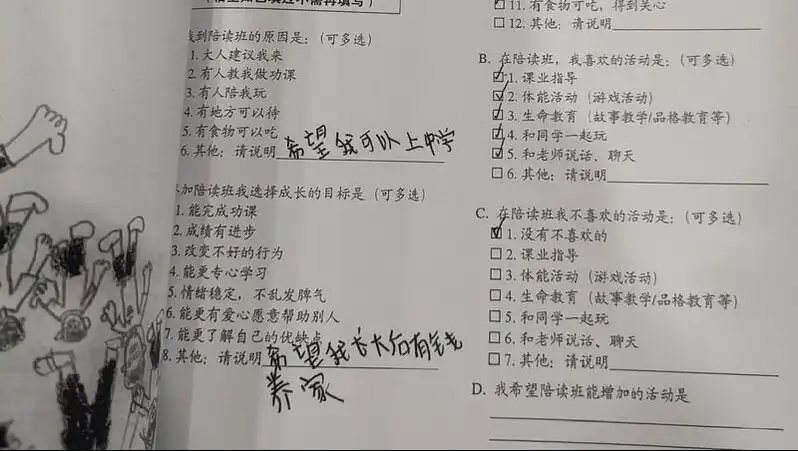 来到陪读班的原因是：（可多选）
1. 大人建议我来
2. 有人教我做功课
3. 有人陪我玩
4. 有地方可以待
5. 有食物可以吃
6. 其他：请说明 希望我可以上中学
参加陪读班我选择成长的目标是（可多选）
1. 能完成功课
2. 成绩有进步
3. 改变不好的行为
4. 能更专心学习
5. 情绪稳定，不乱发脾气
6. 能更有爱心愿意帮助别人
7. 能更了解自己的优缺点
8. 其他：请说明 希望我长大后有钱
养家
11. 有食物可吃，得到关心
12. 其他：请说明
B. 在陪读班，我喜欢的活动是：（可多选）
1. 课业指导
2. 体能活动（游戏活动）
3. 生命教育（故事教学/品格教育等）
4. 和同学一起玩
5. 和老师说话、聊天
6. 其他：请说明
C. 在陪读班我不喜欢的活动是：（可多选）
1. 没有不喜欢的
2. 课业指导
3. 体能活动（游戏活动）
4. 生命教育（故事教学/品格教育等）
5. 和同学一起玩
6. 和老师说话、聊天
7. 其他：请说明
D. 我希望陪读班能增加的活动是